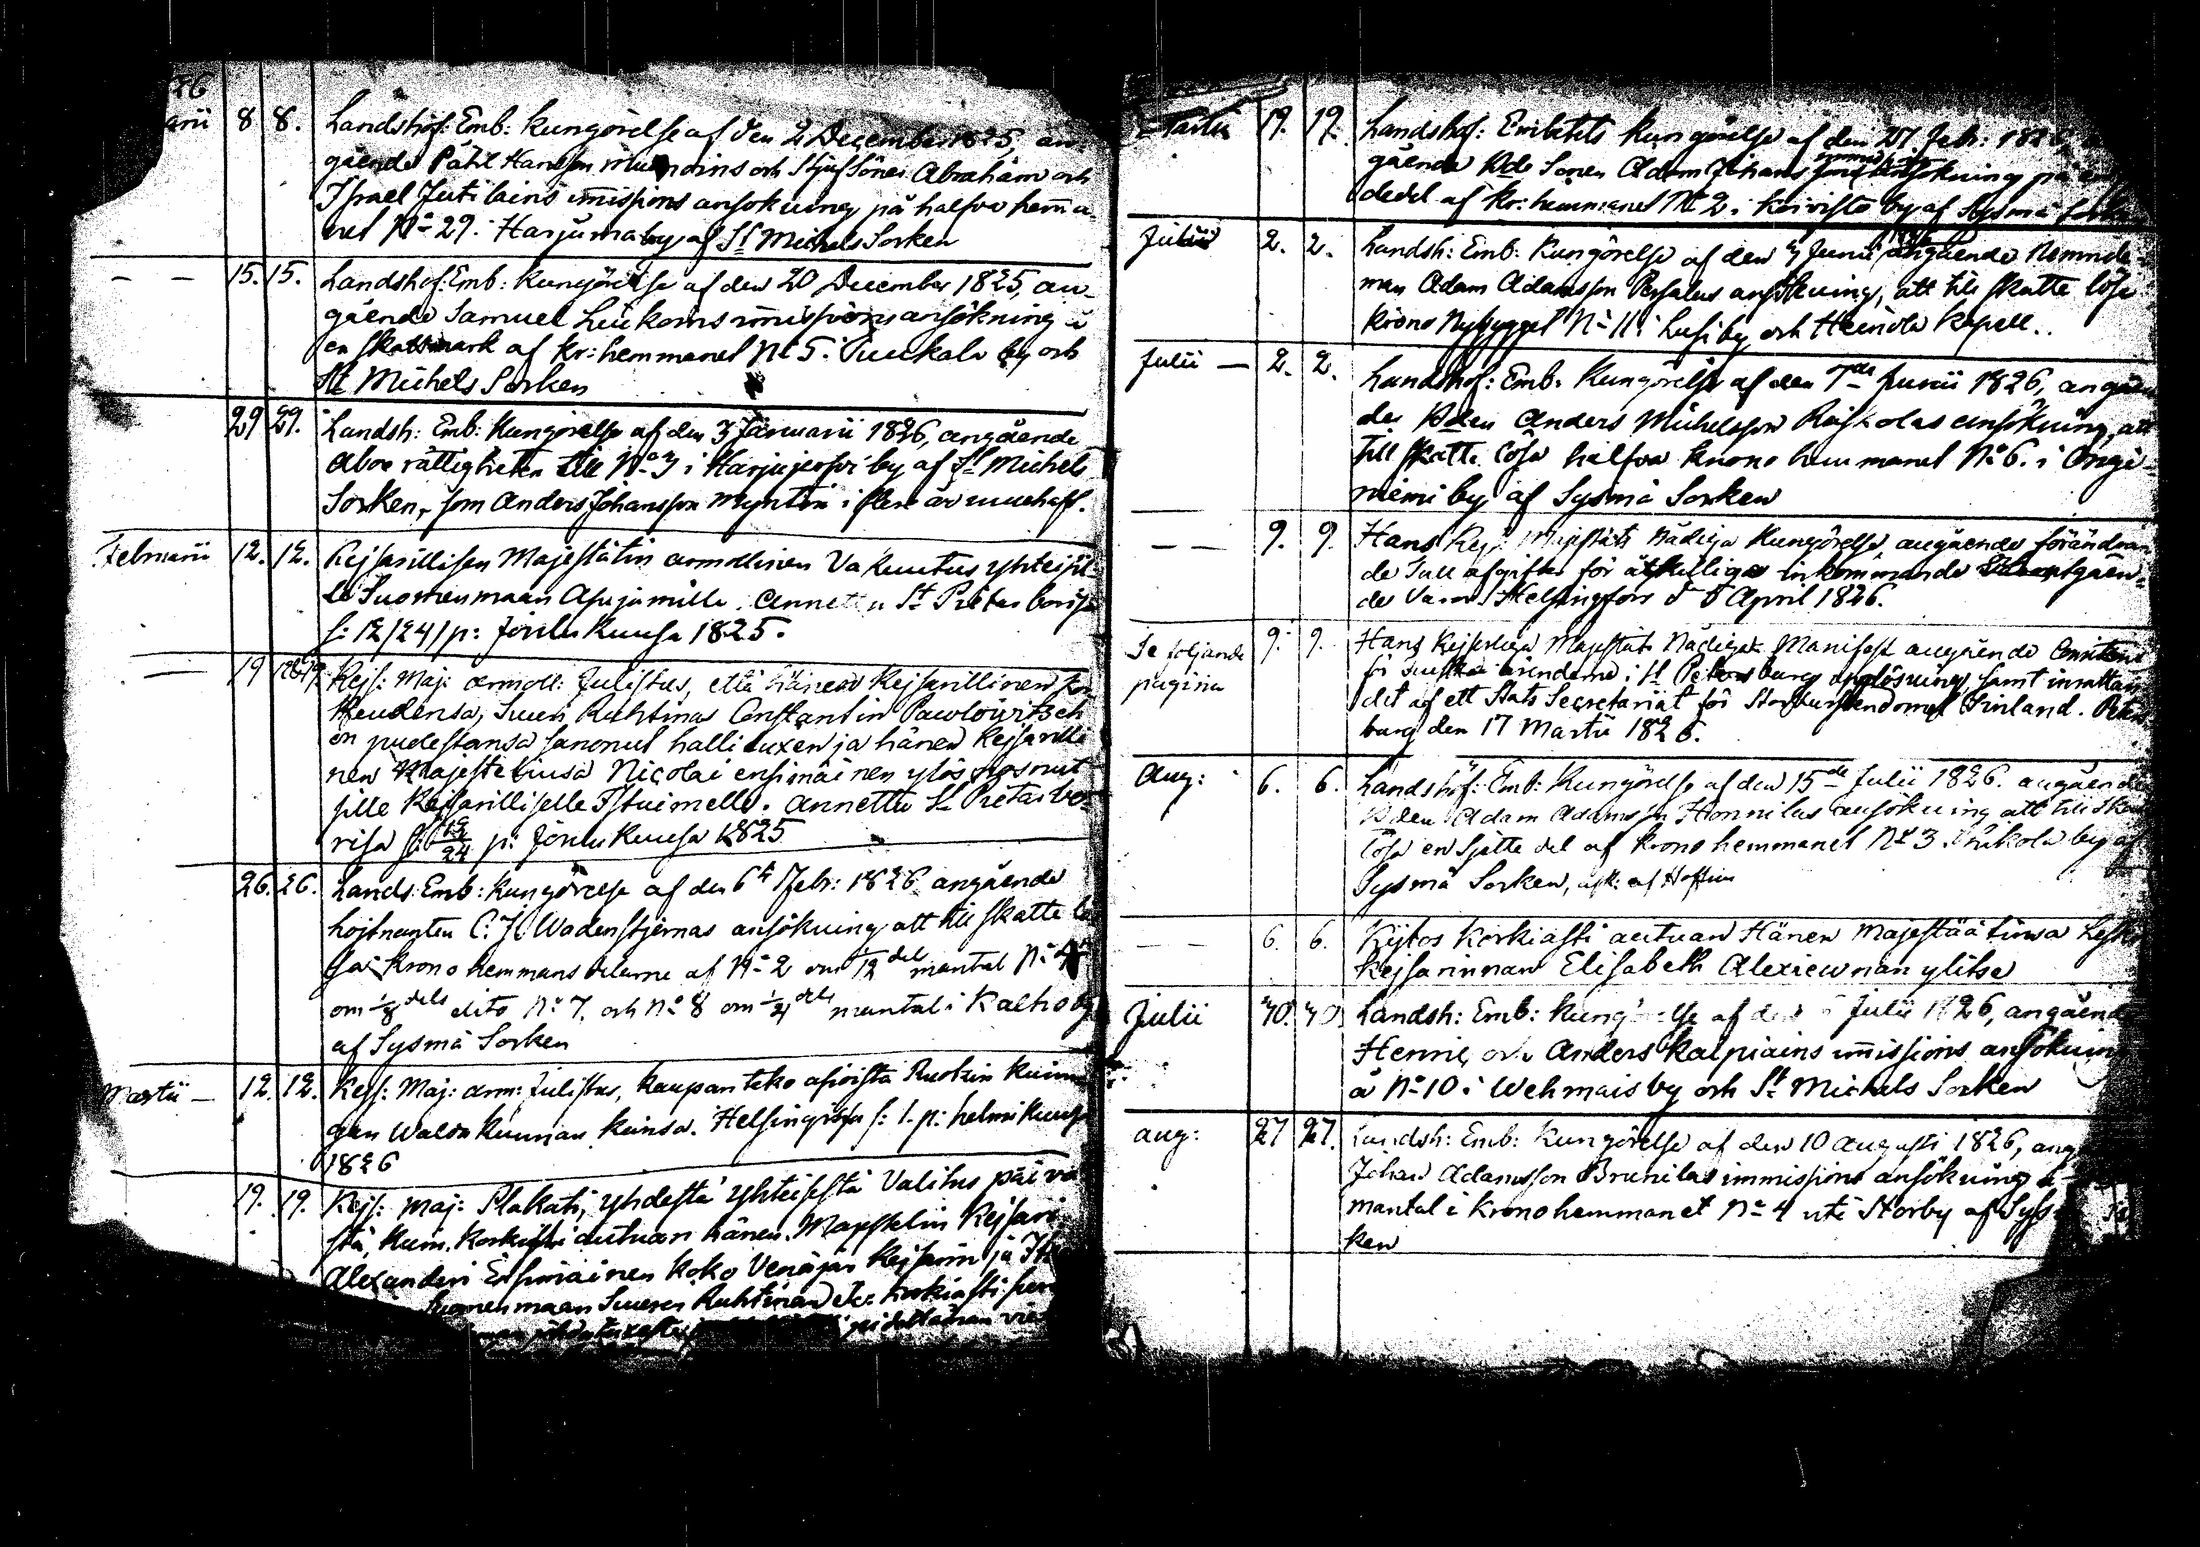 26
arii 8 8. Landshöf: Emb: Kungörelse af den 2 December 1825, an-
gående Påhl Hansson och Stjufsöner Abraham och
Israel Jutilains immissions ansökning på halfva hemma-
net N:o 29. Harjumaby af S:t Michels Socken
— — 15. 15. Landshöf: Emb: Kungörelse af den 20 December 1825, an-
gående Samuel Liukoins immissions ansökning i
en skattmark af kr: hemmanet N:o 5. by och
S:t Michels Socken
29 29. Landsh: Emb: Kungörelse af den 3 Januarii 1826, angående
Aboe rättigheten till N:o i by af S:t Michels
Socken, som Anders Johansson Myntin
Februarii 12. 12. Kejsarillisen Majestätin armollinen Vakuutus yhteisil-
le Suomenmaan Asujamille. Annettu S:t Pietarborisa
s: 12/24/p: Joulu Kuusa 1825.
— 19 19. Kejs: Maj: armoll: Julistus, että hänen Kejsarillinen
Suuri Ruhtinas Constantin Pawlowitsch
on pudestansa sanonut hallituxen ja hänen Kejsarilli
nen Majestetinsa Nicolai ensimäinen ylösastunut
sille Kejsarilliselle Istuimelle. Annettu S:t Pietarbo-
risa s: 12/24 p: Joulu Kuusa 1825
26. 26. Lands: Emb: Kungörelse af den 6:te Febr: 1826 angående
Löjtnanten C: J: Wadenstjernas ansökning att till skatte lö
sa Krono hemmans delarne af N:o 2 om 1/12 del mantal N:o
om 1/8 dels dito N:o 7, och N:o 8 om dels mantal i Kalho by
af Sysmä Socken
Martii — 12. 12. Kejs: Maj: arm: Julistus, kaupanteko asioista Ruotzin
gan Waldakunnan kansa. Helsingisä s: 1. p: helmikuusa
1826
19. 19. Kejs: Maj: Plakati, yhdestä yhteisestä Valitus päivä
stä, kum. Korkiasti autuan hänen Majestetin Kejsari
Alexanderi Ensimäinen koko Venäjän Kejsarin ja
Suomenmaan Suuren Ruhtinan &c: korkiasti
Martii 19. 19. Landshöf: Embetets kungörelse af den 21 Febr: 1826,
gående Bde Sonen Adam Johans ansökning på en
dedel af kr: hemmanet N:o 2 i Koivisto by af Sysmä Socken
Julii 2. 2. Landsh: Emb: Kungörelse af den Junii angående Nemnde-
man Adam Adamsson ansökning, att till skatte lösa
krono Nybygget N:o 11 i Lusi by och Heinola Kapell.
Julii — 2. 2. Landshöf: Emb: Kungörelse af den 7de Junii 1826, angåen
de Bden Anders Michelsson ansökning, att
till skatte lösa halfva krono hemmanet N:o 6. i Onge
niemi by af Sysmä Socken
— — 9. 9. Hans Kejs: Majestäts Nådiga Kungörelse, angående förändran
de Tull afgifter för åtskilliga inkommande utgåen-
de Varor. Helsingfors d. 5 April 1826.
Se följande
pagina
9. 9. Hans Kejserliga Majestäts Nådiga Manifest angående Comiteens
för Finska ärenderne i S:t Petersburg upplösning, samt inrättan
det af ett Stats Secretariat för Storfurstendömet Finland. Peters
burg den 17 Martii 1826.
Aug: 6. 6. Landshöf: Emb: Kungörelse af den 15de Julii 1826. angående
Bden Adam Adamsson Honnilas ansökning att till skatte
lösa en sjette del af Krono hemmanet N:o 3 by af
Sysmä Socken,
— — 6. 6. Kijtos korkiasti autuan Hänen Majestäätinsa Leski
Kejsarinnan Elisabeth Alexiewnan ylitse
Julii 40. 40. Landsh: Emb: Kungörelse af den Julii 1826, angående
Henric och Anders Kalpiains immissions ansökning
å N:o 10 i Wehmais by och S:t Michels Socken
Aug: 27 27. Landsh: Emb: Kungörelse af den 10 Augusti 1826, ang
Johan Adamsson Brunilas immissions ansökning å
mantal i Kronohemmanet N:o 4 uti Storby af Sys
ken